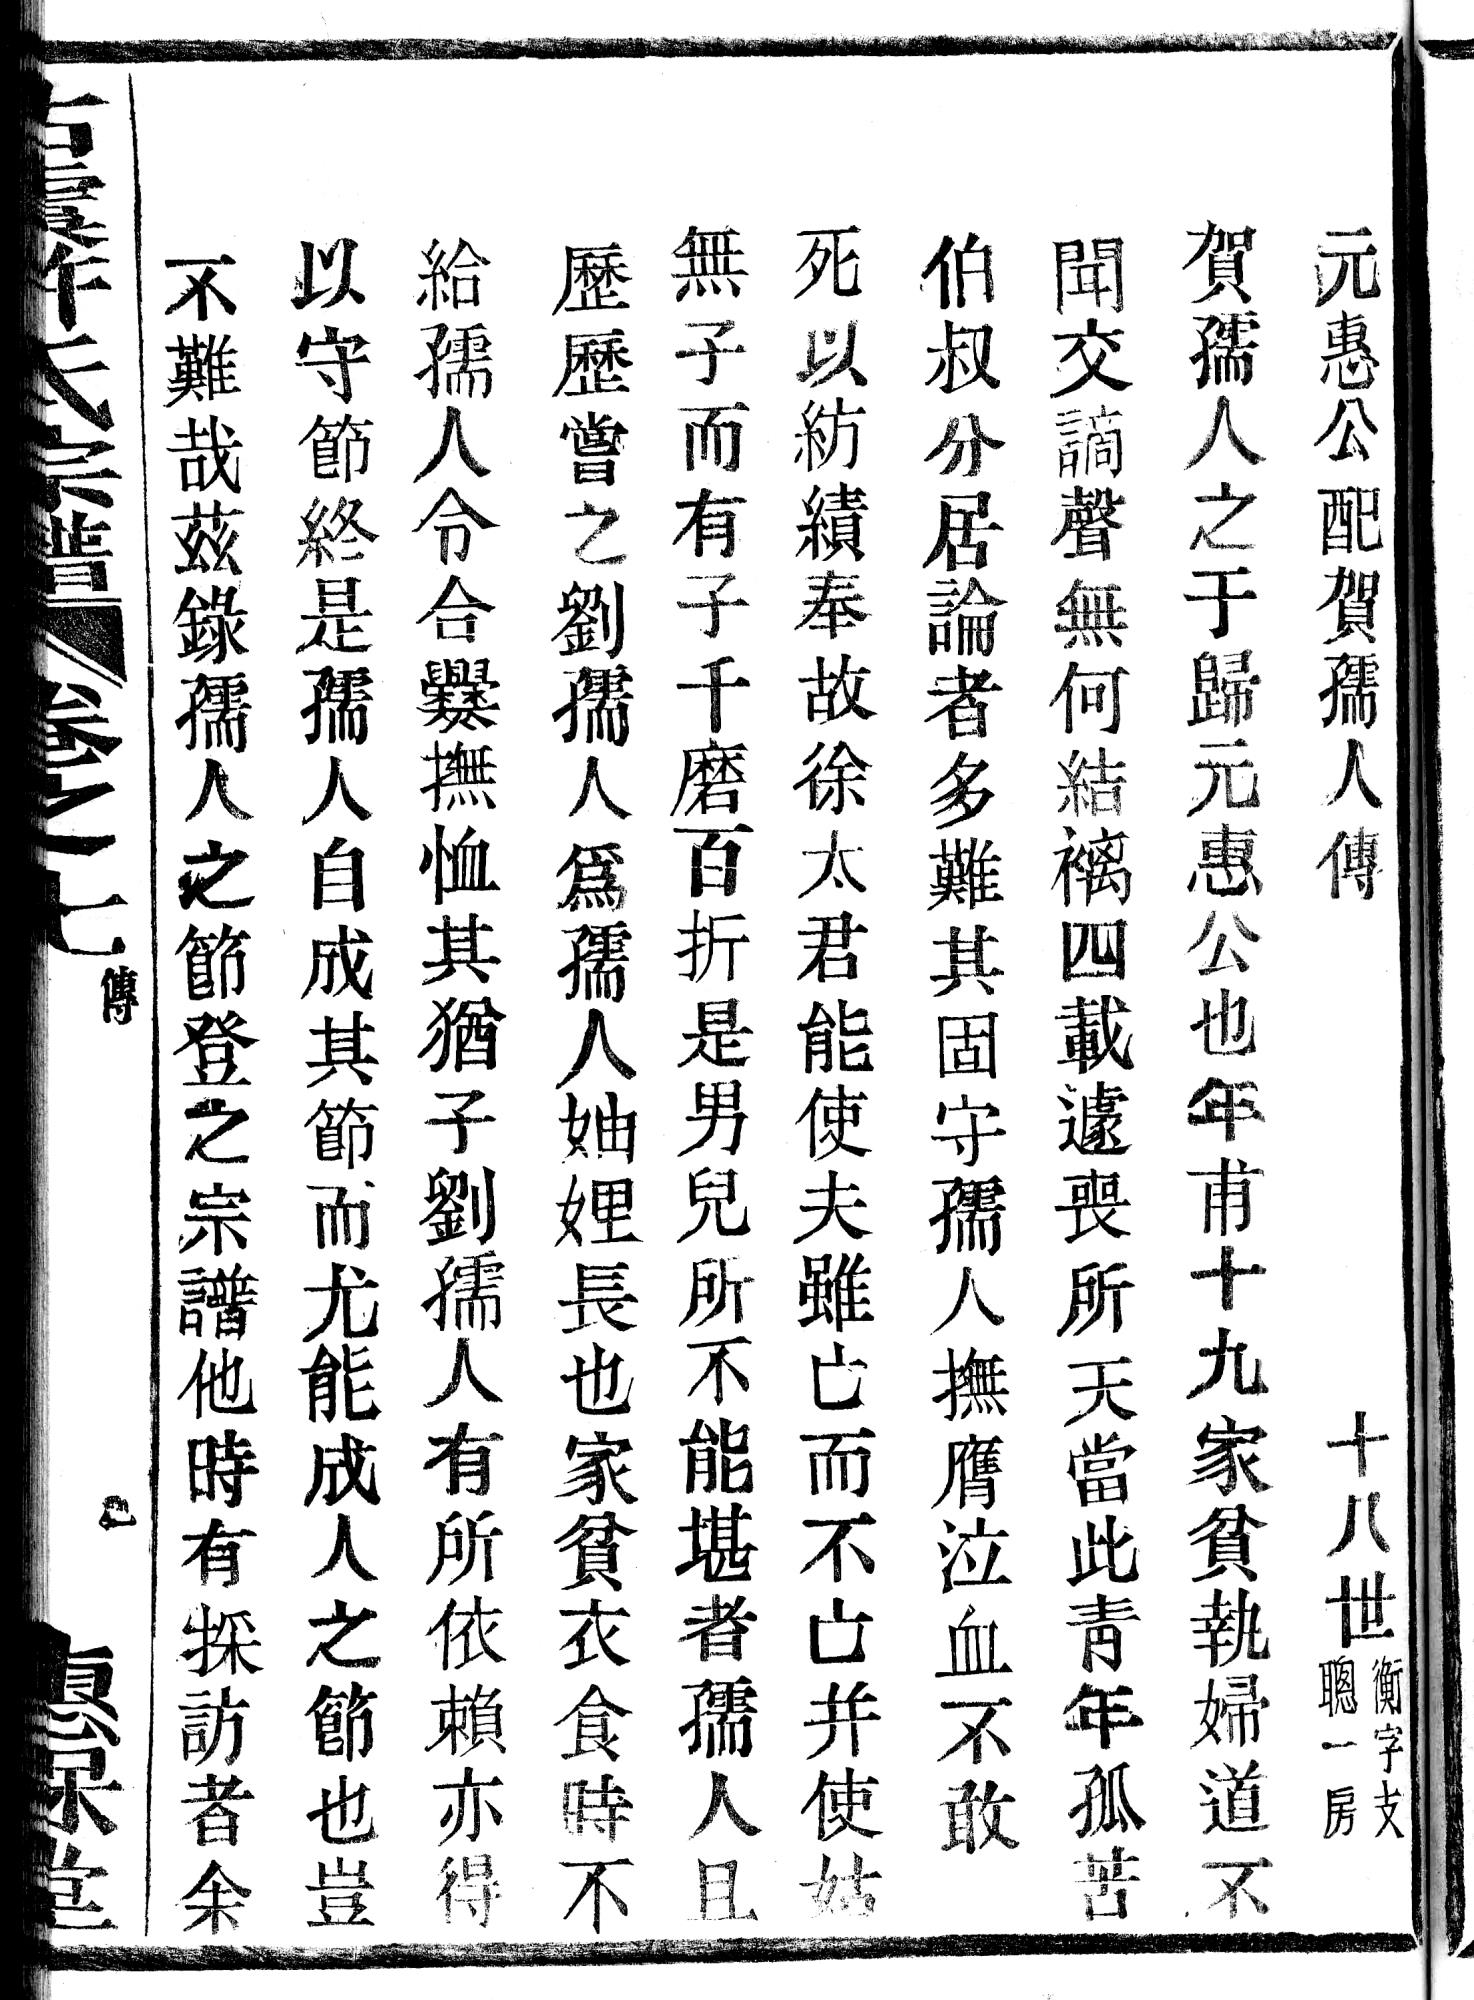 元惠公配賀孺人傳　十八世　衡字支聰一房
賀孺人之于歸元惠公也年甫十九家貧執婦道不
聞交謫聲無何結褵四載遽喪所天當此青年孤苦
伯叔分居論者多難其固守孺人撫膺泣血不敢
死以紡績奉故徐太君能使夫雖亡而不亡并使姑
無子而有子千磨百折是男兒所不能堪者孺人且
歷歷嘗之劉孺人為孺人妯娌長也家貧衣食時不
給孺人令合爨撫恤其猶子劉孺人有所依賴亦得
以守節終是孺人自成其節而尤能成人之節也豈
不難哉茲錄孺人之節登之宗譜他時有採訪者余
氏宗譜　卷之七　傳　惠保堂